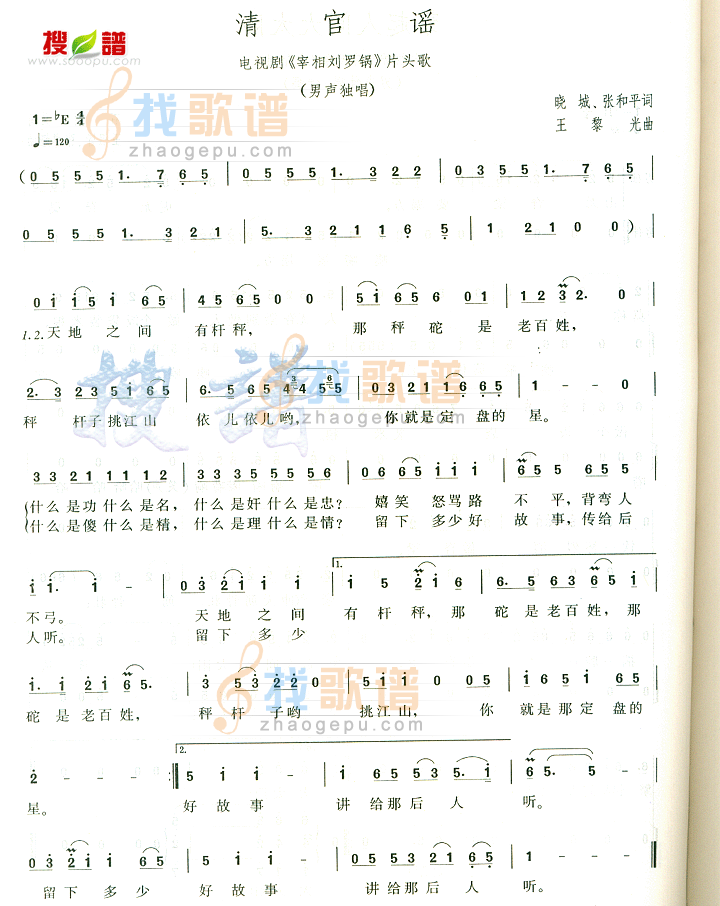 清官谣
搜谱
www.sooopu.com
电视剧《宰相刘罗锅》片头歌
(男声独唱)
晓城、张和平词
1=♭E 4/4
王黎光曲
♩=120
找歌谱
zhaogepu.com
(0 5 5 5 1. 7 6 5 | 0 5 5 1. 3 2 2 | 0 3 5 5 1. 7 6 5 |
0 5 5 5 1. 3 2 1 | 5. 3 2 2 1 1 6 5 | 1 2 3 2 2 | 1 1 2 1 0 0) |
0 1 1 5 1 6 5 | 4 5 6 5 0 0 | 5 1 6 5 6 0 1 | 1 2 3 2. 0 |
1.2.天地之间有杆秤，那秤砣是老百姓，
2. 3 2 3 5 1 6 5 | 6. 5 6 5 4 4 5 5 | 0 3 2 1 1 6 6 5 | 1 - - - |
秤杆子挑江山依儿依儿哟，你就是定盘的星。
搜谱
找歌谱
zhaogepu.com
3 3 2 1 1 1 1 2 | 3 3 3 5 5 5 5 6 | 0 6 6 5 1 1 1 | 6 5 5 5 5 6 |
什么是功什么是名，什么是奸什么是忠？嬉笑怒骂路不平，背弯人
什么是傻什么是精，什么是理什么是情？留下多少好故事，传给后
1.
1 1. 1 - | 0 3 2 1 1 1 | 1 5 2 1 6 | 6. 5 6 3 6 5 1 |
不弓。天地之间有杆秤，那砣是老百姓，那
人听。留下多少
1. 1 2 1 2 6 5. | 3 5 3 2 2 0 | 5 5 3 0 5 | 1 6 5 1 6 5 |
砣是老百姓，秤杆子哟挑江山，你就是那定盘的
找歌谱
zhaogepu.com
2.
2 - - - :| 5 1 1 - | 1 6 5 5 3 5. 1 | 6 5. 5 - |
星。好故事讲给那后人听。
0 3 2 1 1 1 | 1 2 1 1 - | 0 5 5 3 2 1 6 5 | 5 - - - ‖
留下多少好故事讲给那后人听。